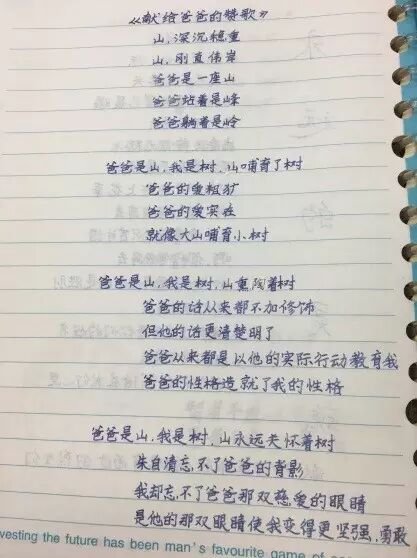 《献给爸爸的赞歌》
山，深沉稳重
山，刚直伟岸
爸爸是一座山
爸爸站着是峰
爸爸躺着是岭
爸爸是山，我是树，山哺育了树
爸爸的爱粗犷
爸爸的爱实在
就像大山哺育小树
爸爸是山，我是树，山熏陶着树
爸爸的话从来都不加修饰
但他的话更清楚明了
爸爸从来都是以他的实际行动教育我
爸爸的性格造就了我的性格
爸爸是山，我是树，山永远关怀着树
朱自清忘不了爸爸的背影
我却忘不了爸爸那双慈爱的眼睛
是他的那双眼睛使我变得更坚强，勇敢
vesting the future has been man's favourite game